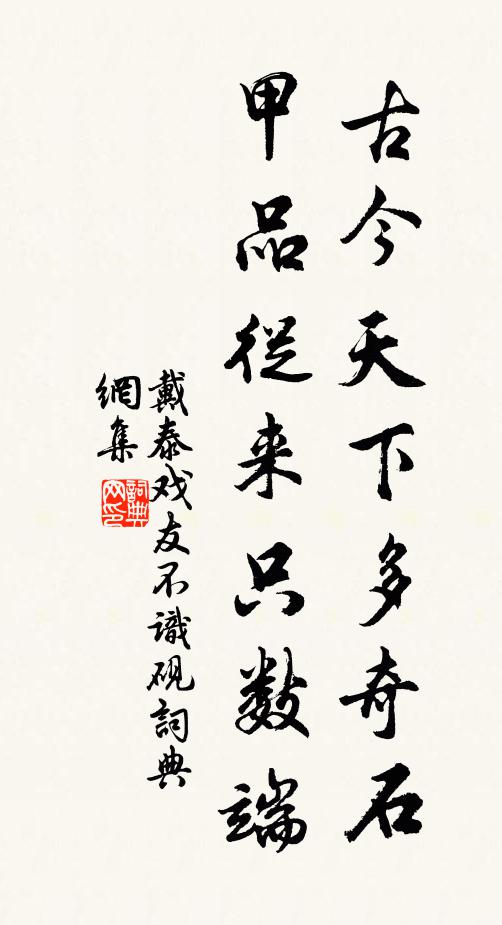 古今天下多奇石
甲品從来只数端
戴泰戏友不識硯詞典
網集
詞典网印